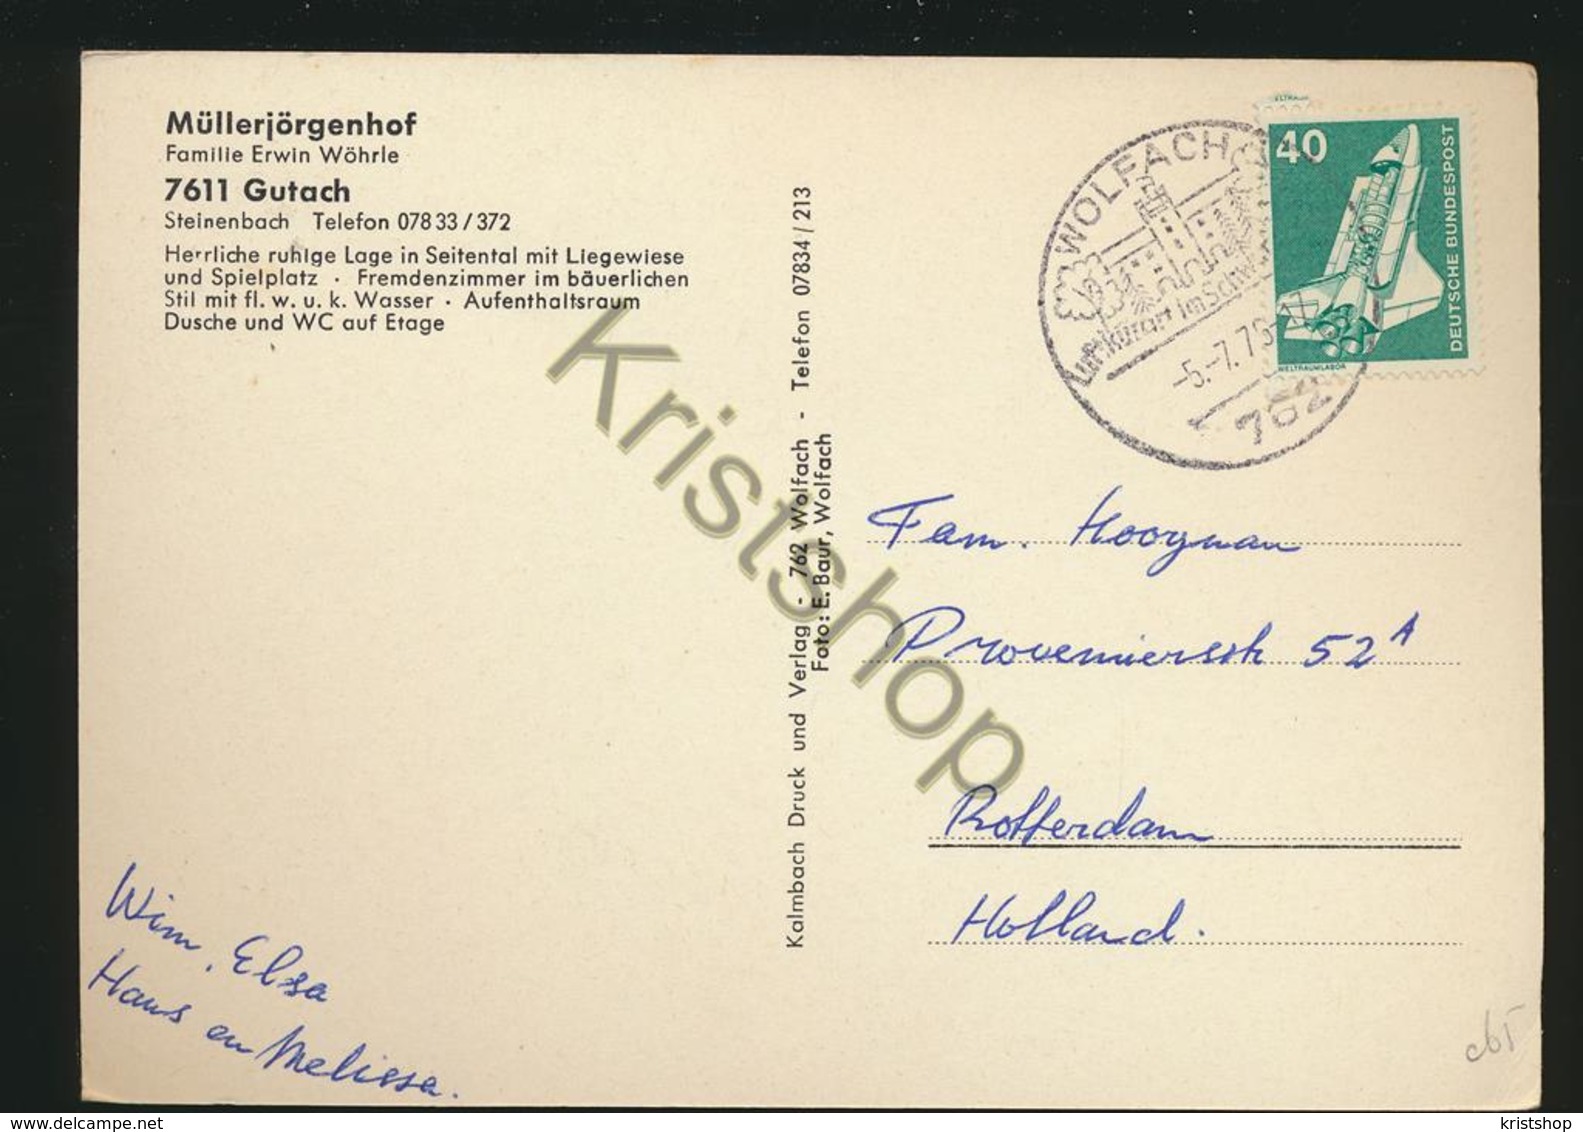 Müllerjörgenhof
Familie Erwin Wöhrle
7611 Gutach
Steinenbach Telefon 078 33 / 372
Herrliche ruhige Lage in Seitental mit Liegewiese
und Spielplatz · Fremdenzimmer im bäuerlichen
Stil mit fl. w. u. k. Wasser · Aufenthaltsraum
Dusche und WC auf Etage
Wim, Elsa
Hans en Melissa.
Kalmbach Druck und Verlag - 762 Wolfach - Telefon 07834 / 213
Foto: E. Baur, Wolfach
WOLFACH
Luftkurort im Schw
-5.-7.76-17
762
40
DEUTSCHE BUNDESPOST
WELTRAUMLABOR
Fam. Hoogman
Provenierstr 52 A
Rotterdam
Holland.
Kristshop
www.delcampe.net
kristshop